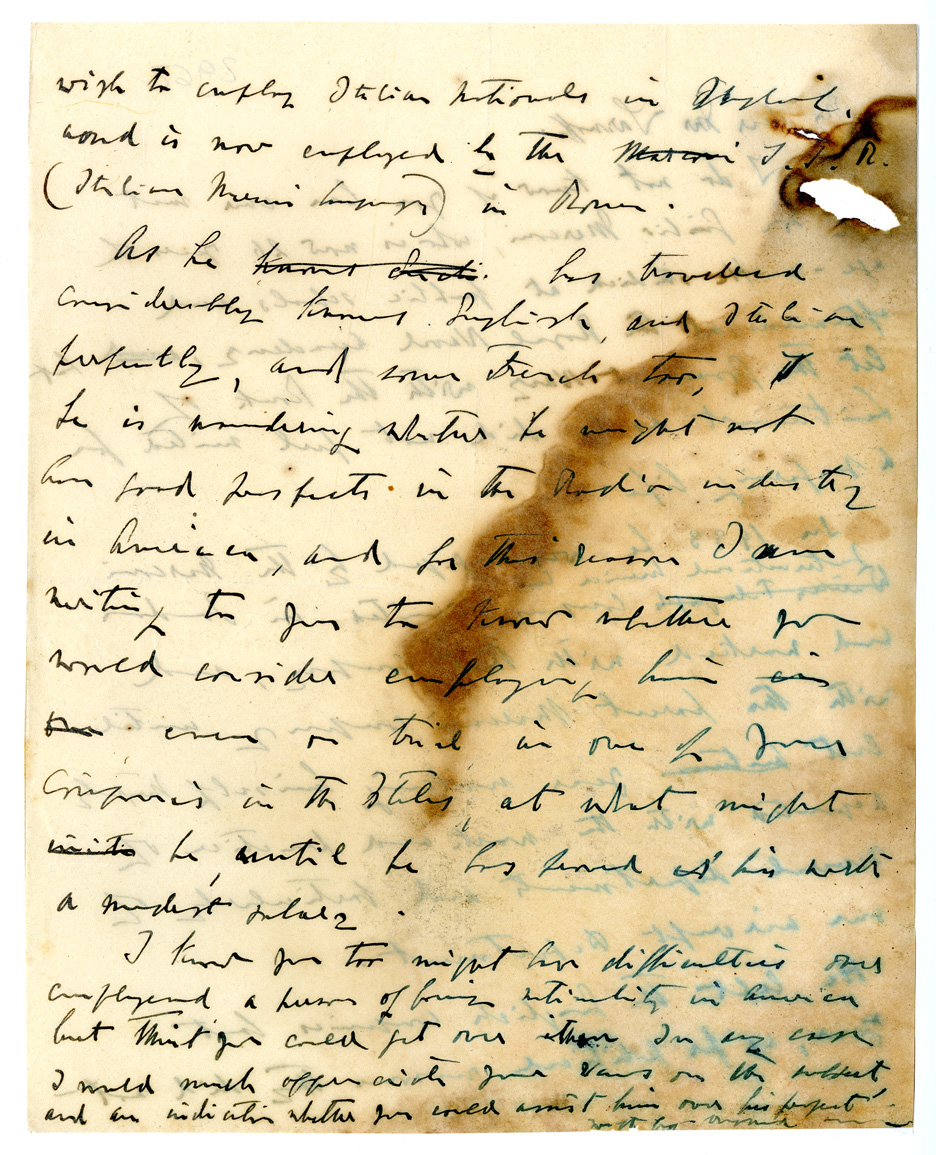 wish to employ Italian nationals in England.
and is now employed by the Marconi I. I. R.
(Italian Marconi Company) in Rome.
As he knows has travelled
considerably knows English, and Italian
perfectly, and some French too,
he is wondering whether he might not
have good prospects in the Radio industry
in America, and for this reason I am
writing to you to know whether you
would consider employing him
even on trial in one of your
Companies in the States, at what might
be, until he has proved his worth
a modest salary.
I know you too might have difficulties over
employing a person of foreign nationality in America
but think you could get over them In any case
I would much appreciate your views on the subject
and an indication whether you could assist him over his project